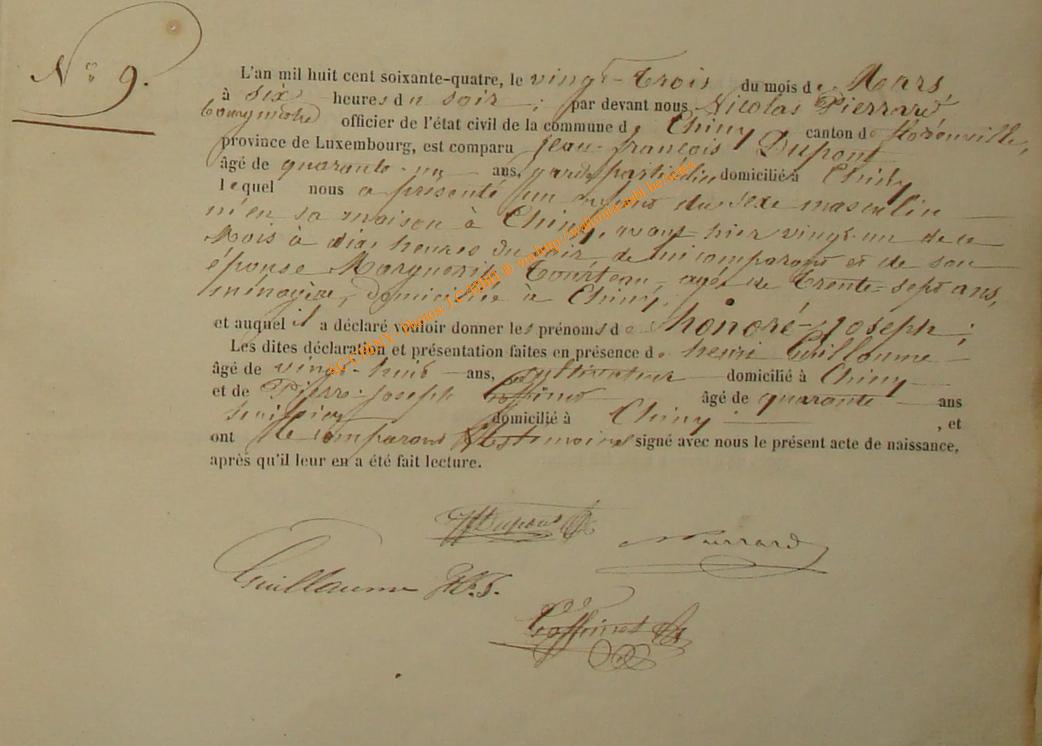 N° 9.
L'an mil huit cent soixante-quatre, le vingt-trois du mois de Mars,
à six heures du soir ; par devant nous Nicolas Pierrard
Bourgmestre officier de l'état civil de la commune de Chiny canton de florenville,
province de Luxembourg, est comparu Jean-françois Dupont
âgé de quarante-un ans, garde particulier domicilié à Chiny
lequel nous a présenté un enfant du sexe masculin
né en sa maison à Chiny, avant hier vingt-un de ce
Mois à dix heures du soir, de lui comparant et de son
épouse Marguerite Tourteau, agée de trente-sept ans,
ménagère, domiciliée à Chiny.
et auquel il a déclaré vouloir donner les prénoms de honoré-Joseph ;
Les dites déclaration et présentation faites en présence de henri Guillaume
âgé de vingt-huit ans, cultivateur domicilié à Chiny
et de Pierre-Joseph Goffinet âgé de quarante ans
domicilié à Chiny , et
ont le comparant & les témoins signé avec nous le présent acte de naissance,
après qu'il leur en a été fait lecture.
JfDupont
Pierrard
Guillaume
Goffinet